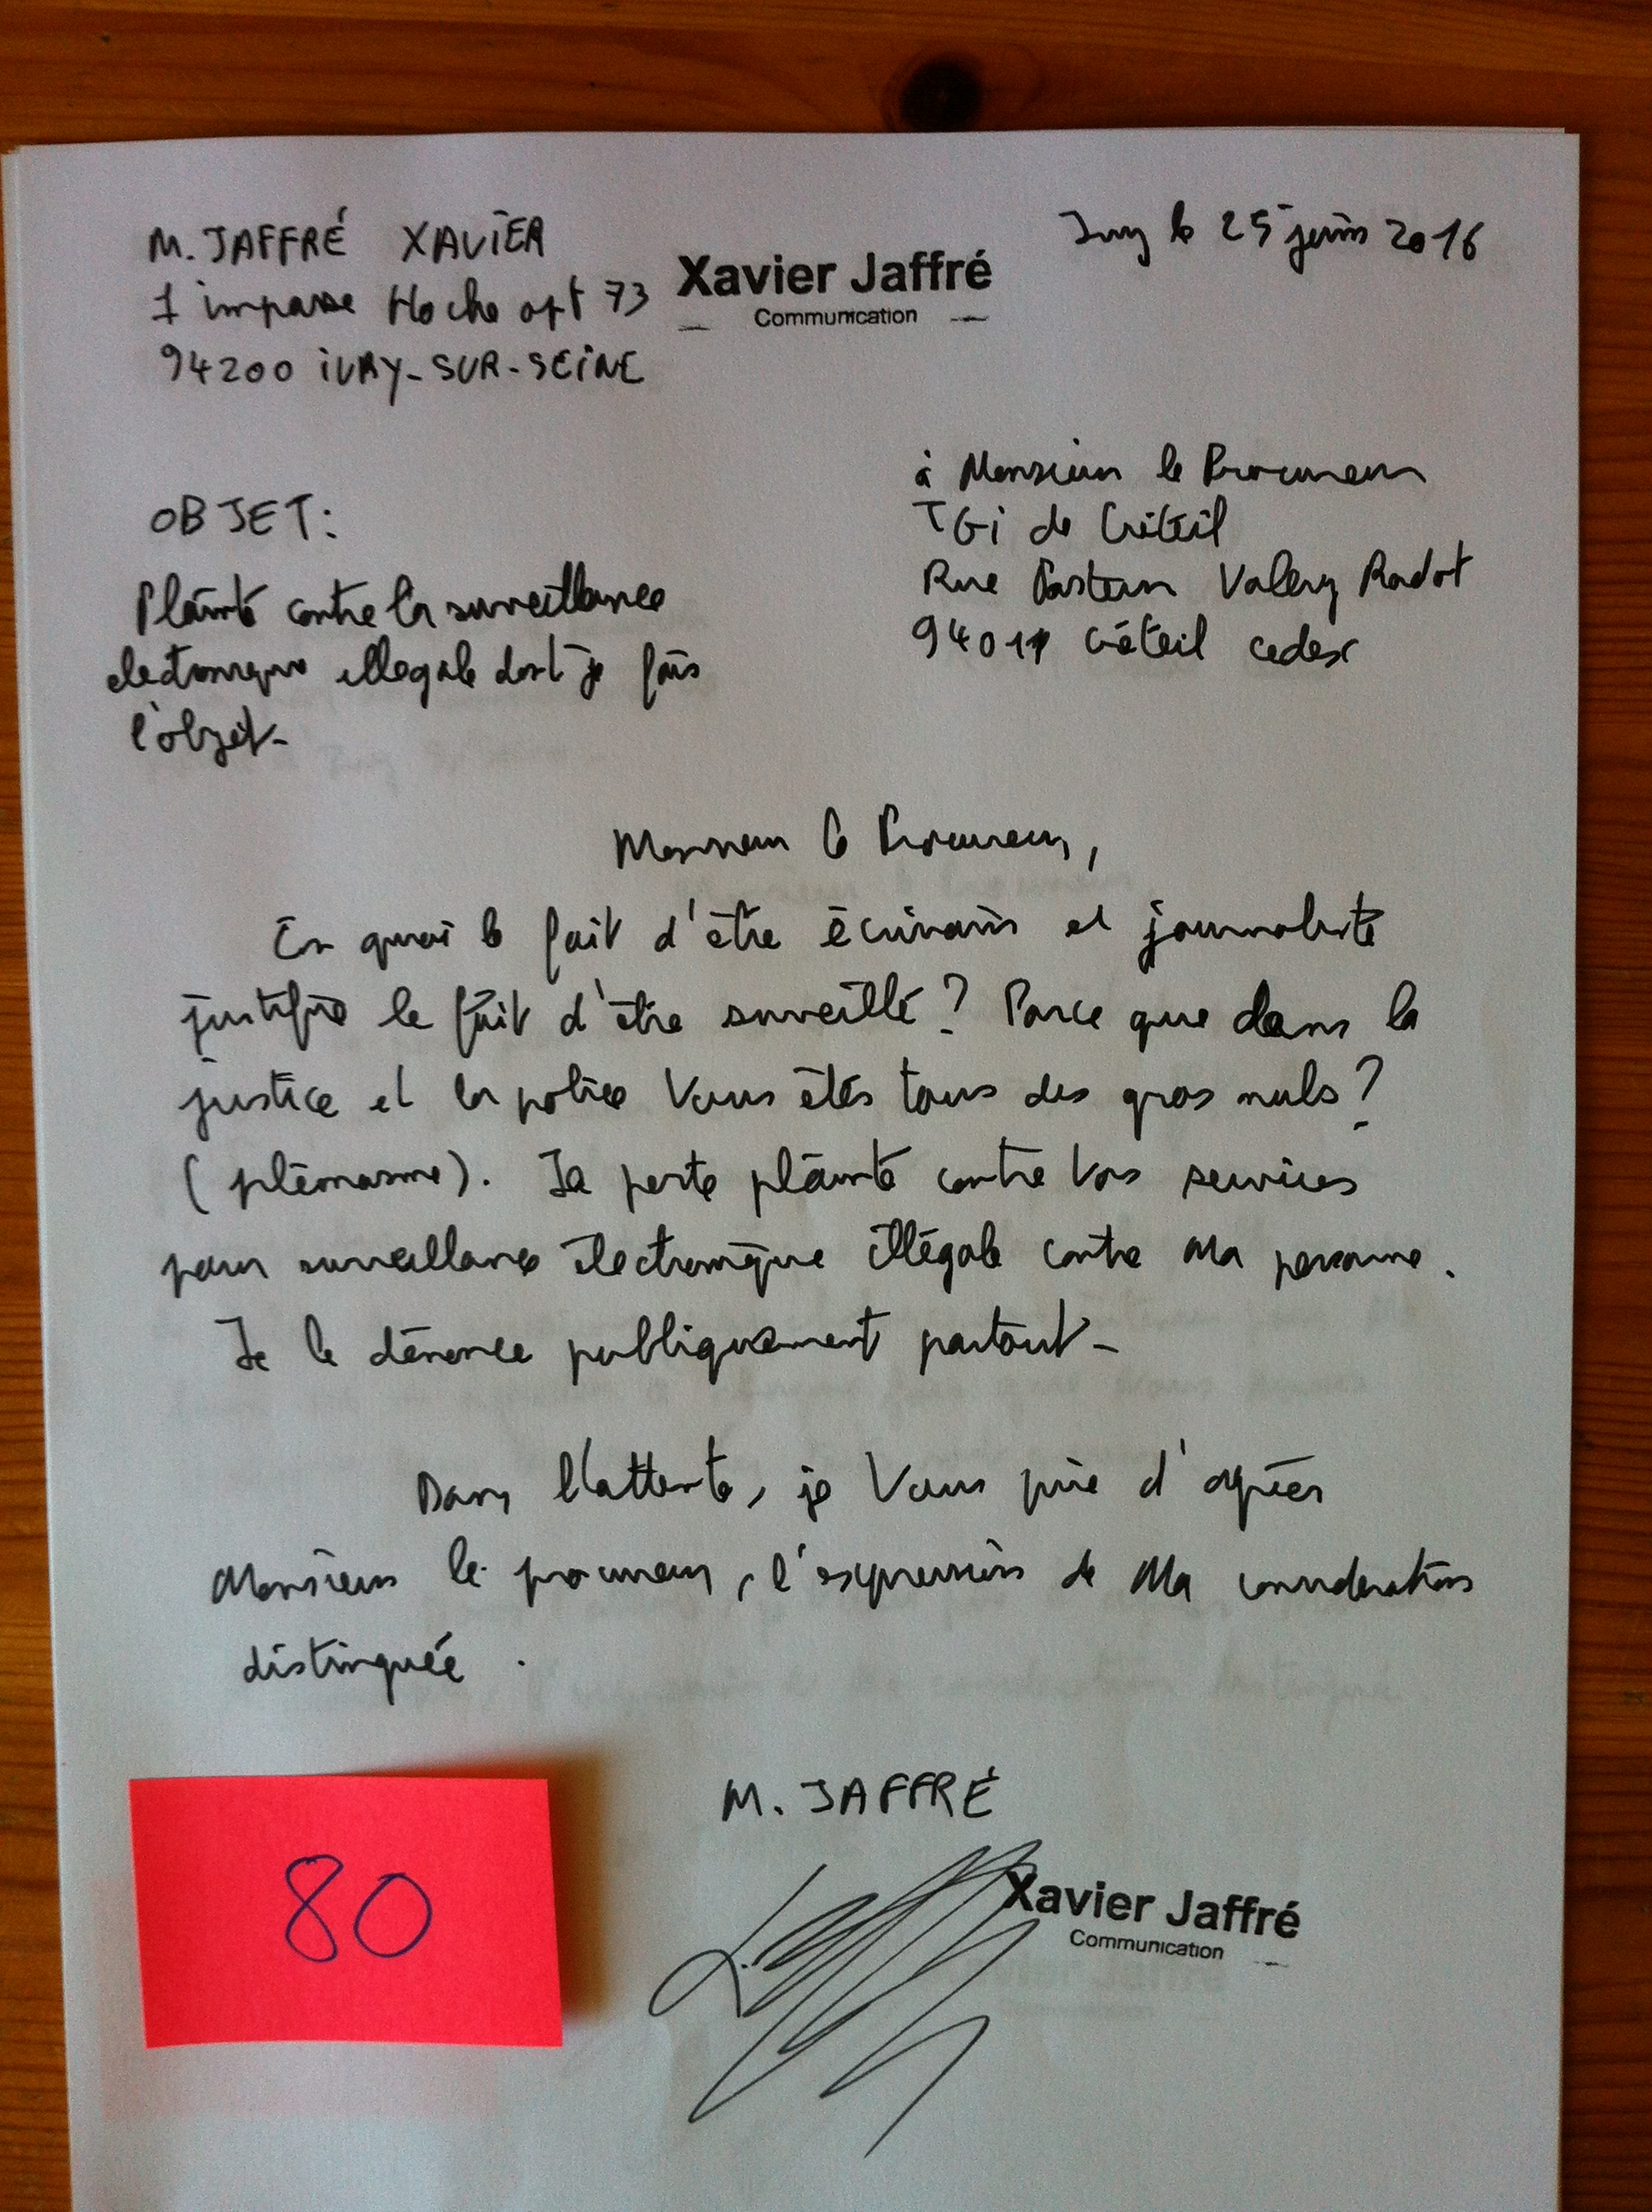 M. JAFFRÉ XAVIER
1 impasse Hoche apt 73
94200 IVRY-SUR-SEINE
Xavier Jaffré
Communication
Ivry le 25 juin 2016
à Monsieur le Procureur
TGI de Créteil
Rue Pasteur Valery Radot
94011 Créteil cedex
OBJET:
Plainte contre la surveillance
electronique illegale dont je fais
l'objet-
Monsieur le Procureur,
En quoi le fait d'être écrivain et journaliste
justifie le fait d'être surveillé ? Parce que dans la
justice et la police vous êtes tous des gros nuls ?
(pléonasme). Je porte plainte contre vos services
pour surveillance électronique illégale contre ma personne.
Je le dénonce publiquement partout-
Dans l'attente, je vous prie d'agréer
Monsieur le procureur, l'expression de ma considération
distinguée.
M. JAFFRÉ
Xavier Jaffré
Communication
80